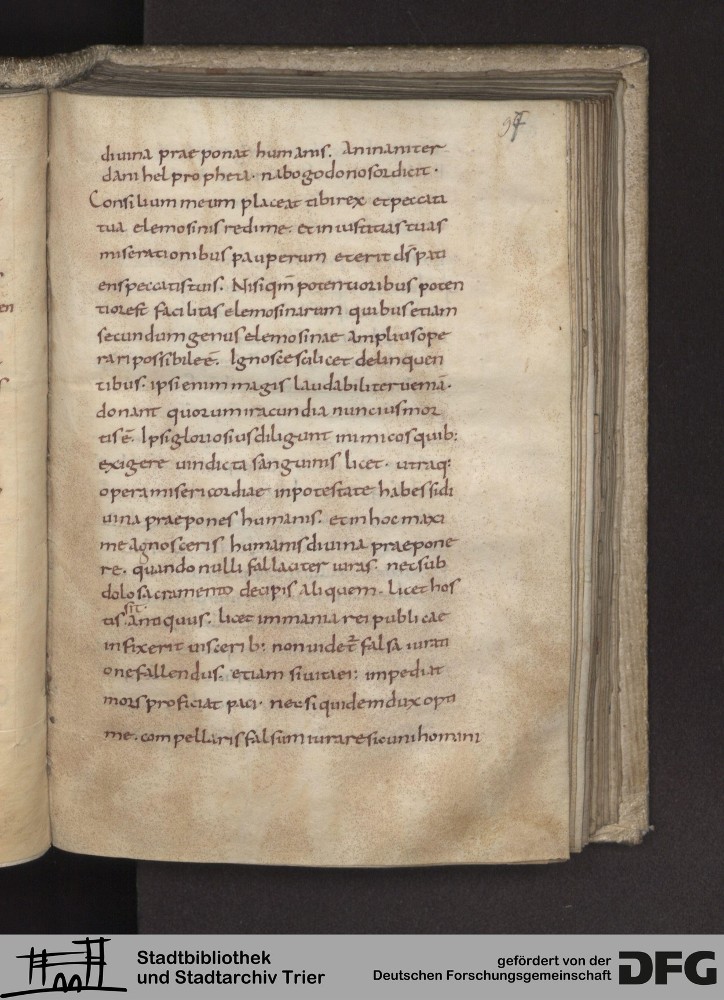 97
diuina praeponat humanis. An inaniter
danihel propheta. nabogodonosor dicit.
Consilium meum placeat tibi rex et peccata
tua elemosinis redime. et iniustitias tuas
miserationibus pauperum et erit ds pati
ens peccatis tuis. Nisi qm potentioribus poten
tior est facilitas elemosinarum quibus etiam
secundum genus elemosinae amplius ope
rari possibile ē. Ignosce scilicet delinquen
tibus. ipsi enim magis laudabiliter ueniā.
donant quorum iracundia nuncius mor
tis ē. Ipsi gloriosius diligunt inimicos quib:
exigere uindicta sanguinis licet. utraq:
opera misericordiae in potestate habes si di
uina praepones humanis. et in hoc maxi
me agnosceris humanis diuina praepone
re. quando nulli fallaciter iuras. nec sub
dolo sacramento decipis aliquem. licet hos
tis sit antiquus. licet immania rei publicae
infixerit uiscerib: non uidet̄ falsa iurati
one fallendus. etiam si uitaei: impediat
mors proficiat paci. nec si quidem dux opti
me. compellaris falsum iurare sicuni homani
Stadtbibliothek
und Stadtarchiv Trier
gefördert von der
Deutschen Forschungsgemeinschaft
DFG